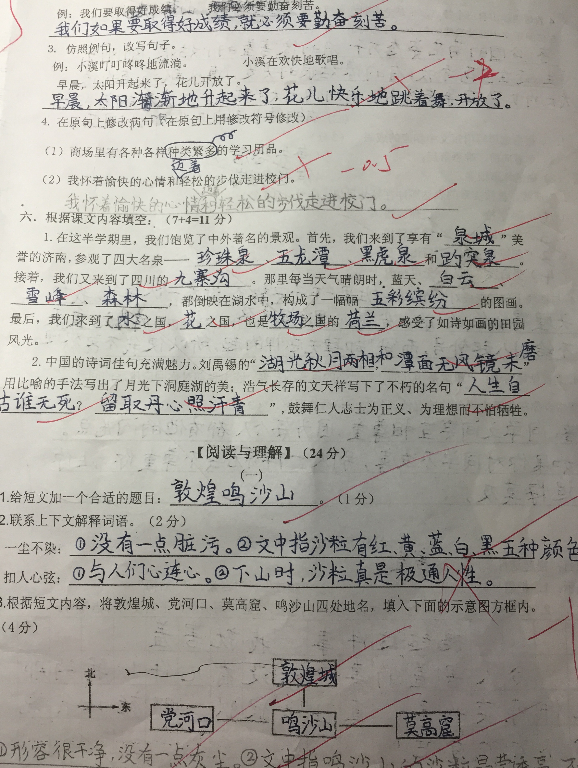 例：我们要取得好成绩，我们必须要勤奋刻苦。
我们如果要取得好成绩，就必须要勤奋刻苦。
3. 仿照例句，改写句子。
例：小溪叮叮咚咚地流淌。 小溪在欢快地歌唱。
早晨，太阳升起来了，花儿开放了。
早晨，太阳渐渐地升起来了，花儿快乐地跳着舞，开放了。
4. 在原句上修改病句（在原句上用修改符号修改）
（1）商场里有各种各样种类繁多的学习用品。
（2）我怀着愉快的心情和轻松的步伐走进校门。 -0.5
迈着
我怀着愉快的心情和轻松的步伐走进校门。
六．根据课文内容填空：（7+4=11 分）
1. 在这半学期里，我们饱览了中外著名的景观。首先，我们来到了享有“泉城”美
誉的济南，参观了四大名泉——珍珠泉、五龙潭、黑虎泉和趵突泉。
接着，我们又来到了四川的九寨沟。那里每当天气晴朗时，蓝天、白云、
雪峰、森林，都倒映在湖水中，构成了一幅幅五彩缤纷的图画。
最后，我们来到了水之国，花之国，也是牧场之国的荷兰，感受了如诗如画的田园
风光。
2. 中国的诗词佳句充满魅力。刘禹锡的“湖光秋月两相和潭面无风镜未磨
用比喻的手法写出了月光下洞庭湖的美；浩气长存的文天祥写下了不朽的名句“人生自
古谁无死？留取丹心照汗青”，鼓舞仁人志士为正义、为理想而不怕牺牲。
【阅读与理解】（24 分）
（一）
1.给短文加一个合适的题目：敦煌鸣沙山。（1 分）
2.联系上下文解释词语。（2 分）
一尘不染：①没有一点脏污。②文中指沙粒有红、黄、蓝、白、黑五种颜色
扣人心弦：①与人们心连心。②下山时，沙粒真是极通人性。
3.根据短文内容，将敦煌城、党河口、莫高窟、鸣沙山四处地名，填入下面的示意图方框内。
（4 分）
北
敦煌城
东
党河口 鸣沙山 莫高窟
①形容很干净，没有一点灰尘。②文中指鸣沙山